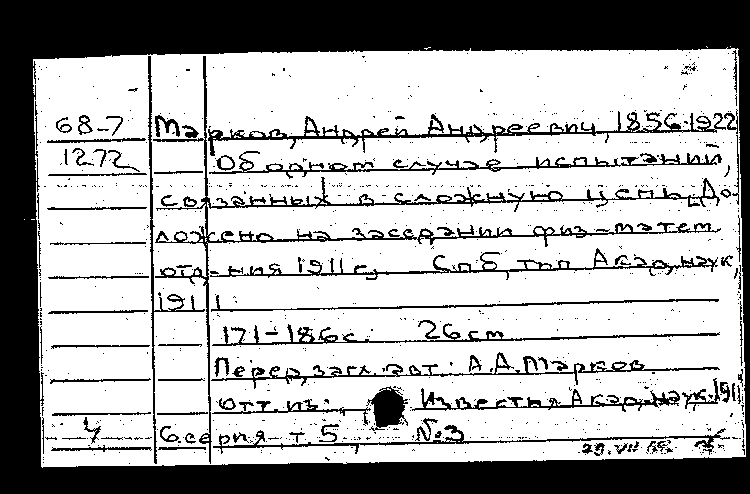 68-7 Марков, Андрей Андреевич, 1856-1922
1272 Об одном случае испытаний,
связанных в сложную цепь. До-
ложено на заседании физ-матем
отд-ния 1911 г. Спб, тип Акад. наук,
1911
171-186 с. 26 cm
Перед загл. авт: А.А.Марков
Отт. из: Известия Акад. наук. 191
4 6 серия т. 5, №3
29.VII